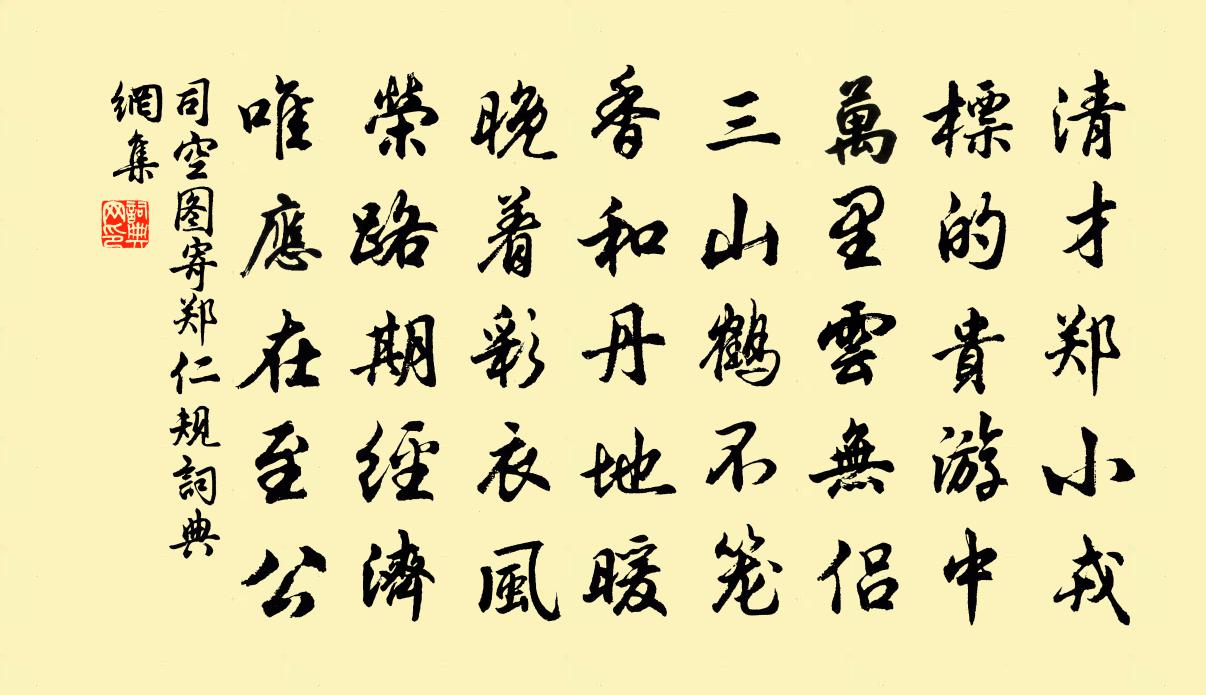 清才郑小戎
標的貴游中
萬里雲無侣
三山鹤不笼
香和丹地暖
晚着彩衣風
榮路期經濟
唯應在至公
司空图寄郑仁规詞典
網集
詞典网印